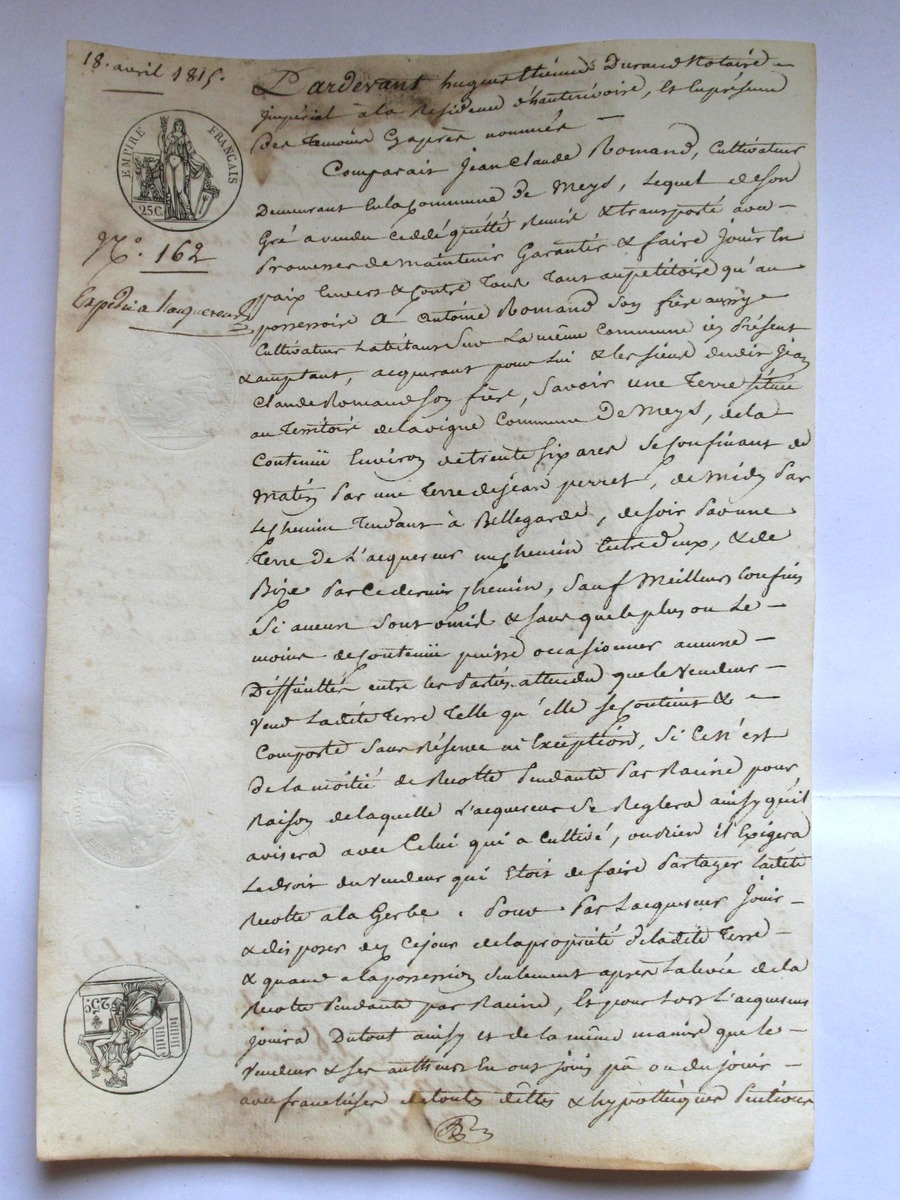 18. avril 1815.
Pardevant hugues Etienne Durand Notaire
Impérial à la Residence d'hauterivoire, et En présence
Des temoins Cyaprès nommés
EMPIRE FRANÇAIS
25 C.
Comparait Jean Claude Romand, Cultivateur
Demeurant En la Commune de Meys, Lequel de son
N.° 162
Gré a vendu cedé quitté Remis & transporté avec
Promesse de maintenir Garantir & faire Jouir En
Expédié a l'acquereur
paix Envers & Contre Tous Tant au petitoire qu'au
possessoire A antoine Romand Son frère aussy
Cultivateur habitant Sur La même Commune icy Présent
& acceptant, acquerant pour Lui & les siens dudit Jean
Claude Romand son frère, Savoir une Terre située
au Territoire de la vigne Commune De Meys, de la
Contenüe Environ de trente six ares Se Confinant de
Matin Par une Terre de jean perret, de midy Par
Le chemin Tendant à Bellegarde, de soir Par une
Terre De L'acquereur un chemin Entre deux, & de
Bize Par Ce dernier chemin, Sauf Meilleurs Confins
Si aucun Sont omis & sans que le plus ou Le
moins de Contenüe puisse occasionner aucune
Difficultés entre les Parties, attendu que le Vendeur
Vend Ladite Terre Telle qu'elle se Contient &
Comporte Sans Réserve ni Exception, Si Ce N'est
De la moitié de Recolte Pendante Par Racine pour
Raison de laquelle l'acquereur Se Reglera ainsy qu'il
avisera avec Celui qui a Cultivé, ou bien il Exigera
Le droit du Vendeur qui Etoit de faire Partager ladite
Recolte a la Gerbe. Pour Par L'acquereur Jouir
& disposer dez Cejour de la propriété de ladite Terre
& quand a la possession Seulement après La levée de la
Recolte Pendante par Racine, Et pour Lors L'acquereur
25 C.
jouira Du tout ainsy et de la même maniere que le
Vendeur & ses autheurs En ont joui pû ou du jouir
avec franchises de toutes dettes & hypotheques